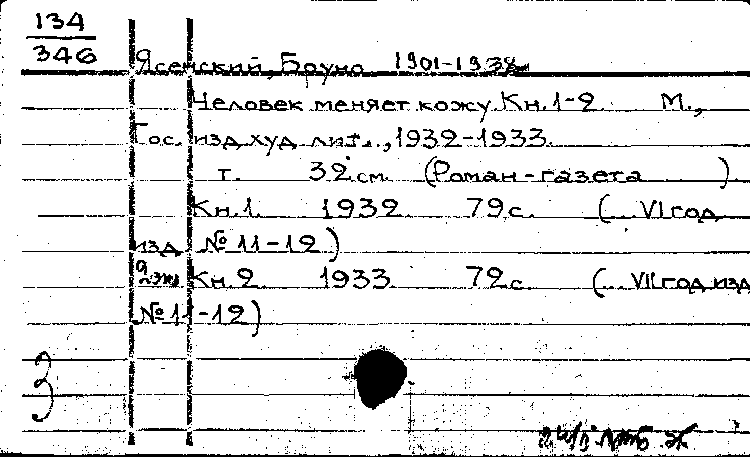 134
346
Ясенский, Бруно 1901-1938
Человек меняет кожу Кн.1-2 М.,
Гос. изд. худ. лит., 1932-1933.
т. 32 см. (Роман-газета )
Кн.1. 1932 79 с. (... VI год
изд № 11-12)
2 экз Кн.2 1933 72 с. (... VII год изд
№ 11-12)
З